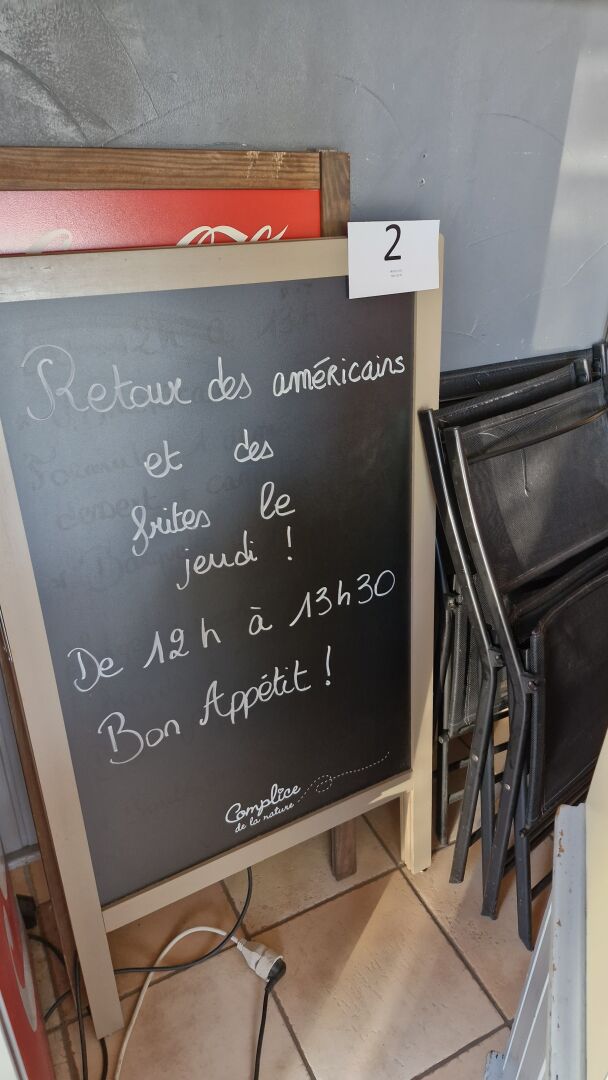 2
Retour des américains
et des
frites le
jeudi !
De 12h à 13h30
Bon Appétit !
Complice
de la nature